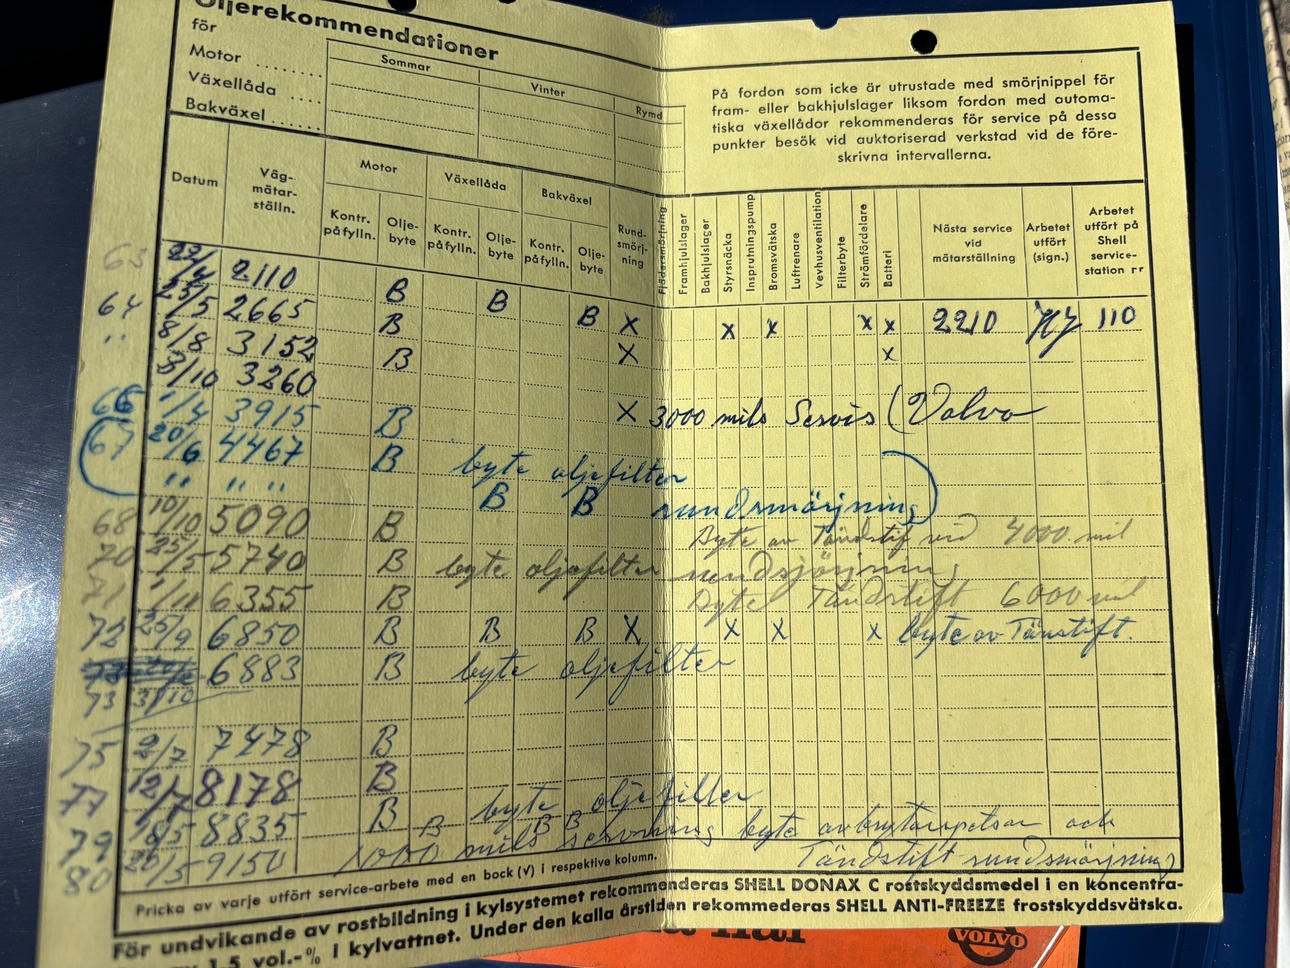 Oljerekommendationer
för
Motor ........
Växellåda ....
Bakväxel ......
Sommar
Vinter
Rymd
På fordon som icke är utrustade med smörjnippel för
fram- eller bakhjulslager liksom fordon med automa-
tiska växellådor rekommenderas för service på dessa
punkter besök vid auktoriserad verkstad vid de före-
skrivna intervallerna.
Datum
Väg-
mätar-
ställn.
Motor
Kontr.
påfylln.
Olje-
byte
Växellåda
Kontr.
påfylln.
Olje-
byte
Bakväxel
Kontr.
påfylln.
Olje-
byte
Rund-
smörj-
ning
Fjädersmörjning
Framhjulslager
Bakhjulslager
Styrsnäcka
Insprutningspump
Bromsvätska
Luftrenare
Vevhusventilation
Filterbyte
Strömfördelare
Batteri
Nästa service
vid
mätarställning
Arbetet
utfört
(sign.)
Arbetet
utfört på
Shell
service-
station nr
63 22/4 2110 B B B X X X X X 2210 110
64 23/5 2665 B X X
" 8/8 3152 B
8/10 3260 X 3000 mils Servis (Volvo
66 1/4 3915 B
(67 20/6 4467 B byte oljefilter
" " " B B rundsmörjning)
68 10/10 5090 B Byte av Tändstif vid 4000 mil
70 25/5 5740 B byte oljefilter rundsjörjning
71 6355 B Byte Tändstift 6000 mil
72 25/9 6850 B B B X X X X byte av Tänstift.
6883 B byte oljefilter
73 3/10
75 2/7 7478 B
77 12/7 8178 B
79 18/5 8835 B byte oljefilter
B B B
80 26/5 9150 1000 mils servning byte avbrytarspetsar och
Tändstift rundsmörjning
Pricka av varje utfört service-arbete med en bock (V) i respektive kolumn.
För undvikande av rostbildning i kylsystemet rekommenderas SHELL DONAX C rostskyddsmedel i en koncentra-
1,5 vol.-% i kylvattnet. Under den kalla årstiden rekommederas SHELL ANTI-FREEZE frostskyddsvätska.
VOLVO